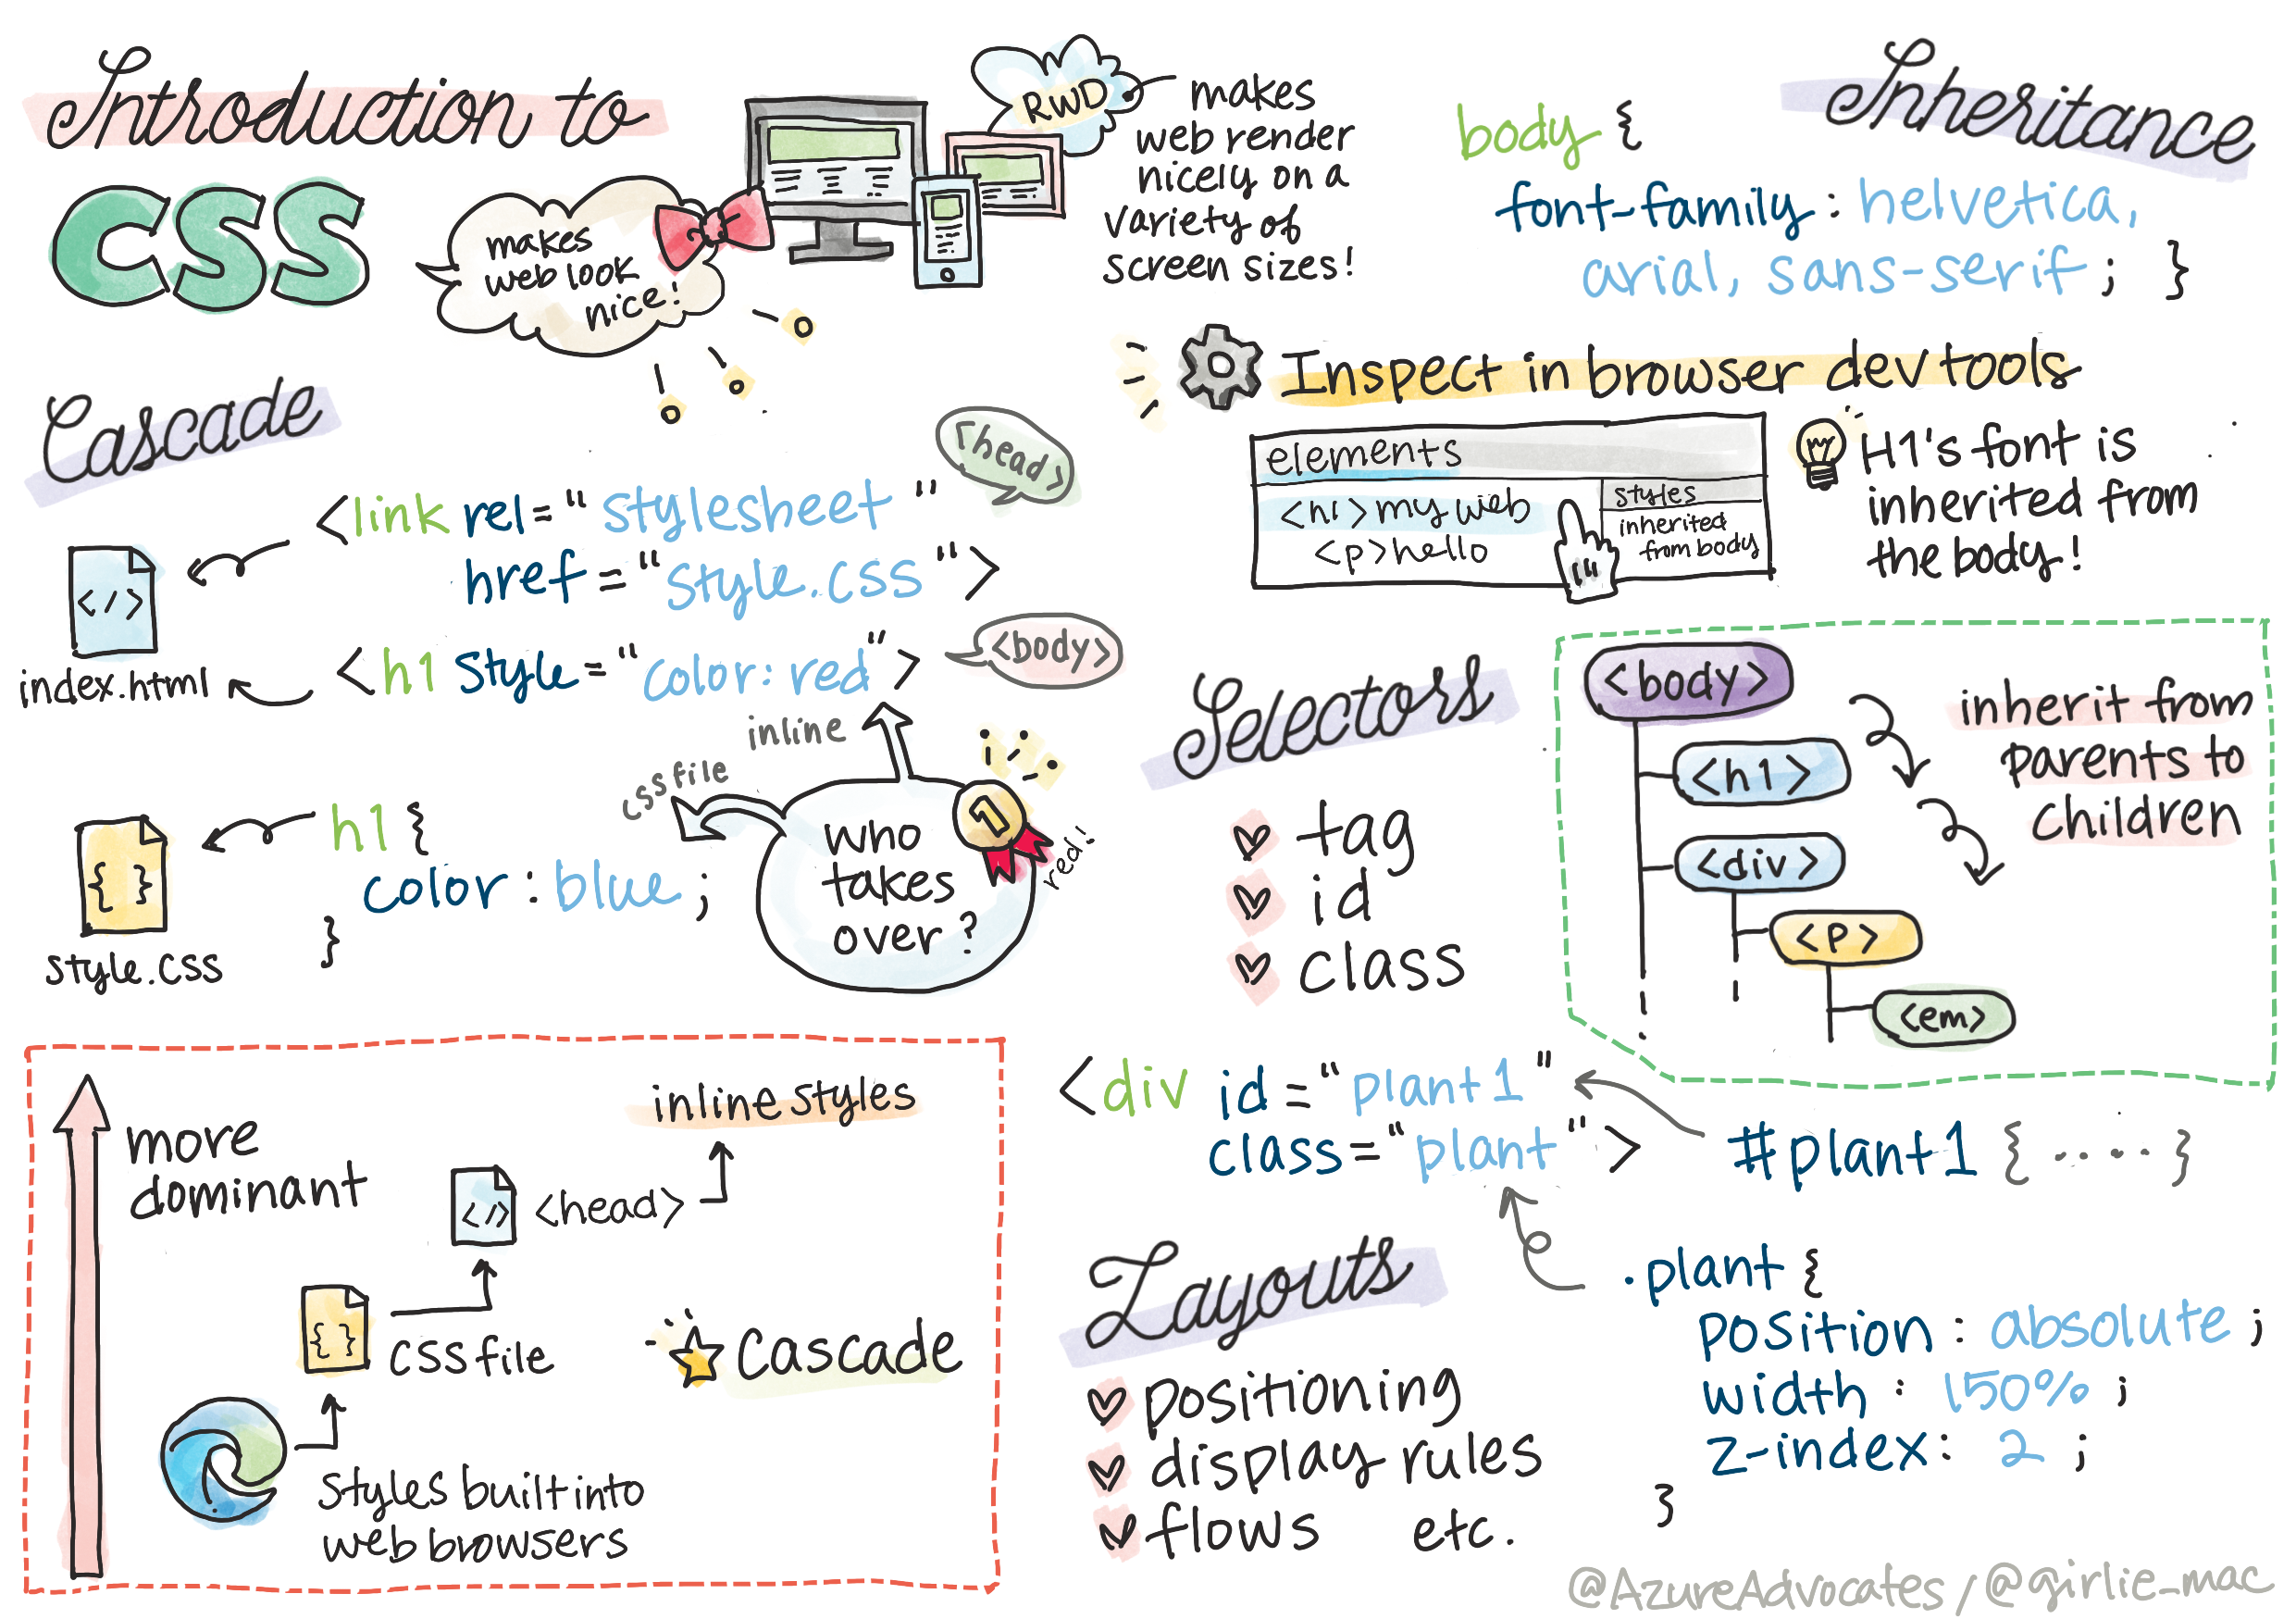 Introduction to
CSS
makes
web look
nice!
RWD
makes
web render
nicely on a
variety of
screen sizes!
Cascade
<head>
<link rel="stylesheet"
href="style.css">
</>
index.html
<h1 style="color:red">
<body>
inline
css file
h1 {
color : blue ;
}
{ }
style.css
who
takes
over?
1
red!
more
dominant
inline styles
</>
<head>
{ }
css file
Cascade
styles built into
web browsers
Inheritance
body {
font-family : helvetica,
arial, sans-serif ; }
Inspect in browser dev tools
elements
<h1>my web
<p>hello
styles
inherited
from body
H1's font is
inherited from
the body!
Selectors
tag
id
class
<body>
<h1>
<div>
<p>
<em>
inherit from
parents to
children
<div id="plant1"
class="plant">
#plant1 {.....}
.plant {
position : absolute ;
width : 150% ;
z-index : 2 ;
}
Layouts
positioning
display rules
flows etc.
@AzureAdvocates / @girlie_mac